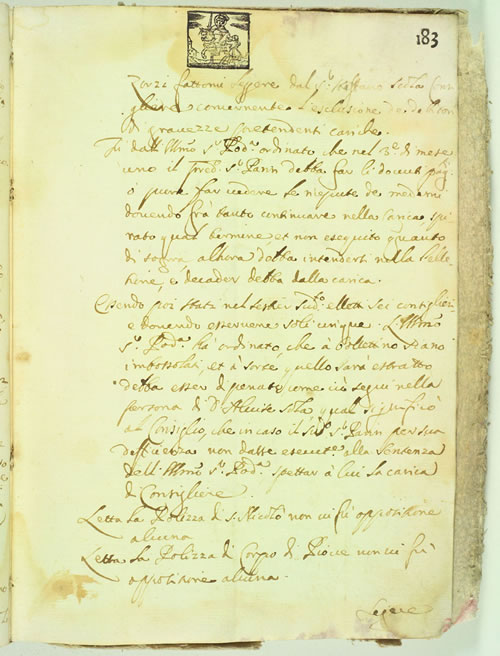 183
Zorzi fattomi leggere dal s.r Steffano Sola Con
gliere concernente l'esclusione de debitori
di gravezze pretendenti cariche.
Fù dall'Illmo s.r Pod.a ordinato che nel 3.e di mese
uno il s.r Panin debba far li dovuti pag.i
ò pure far vedere le ricevute de medemi
dovendo frà tanto continuare nella carica, spi
rato qual termine, et non eseguito quanto
di sopra alhora debba intendersi nella
tione, e decader debba dalla carica.
Essendo poi stati nel eletti sei consiglieri
e dovendo esservene soli cinque. L'Illmo
s.r Pod.a hà ordinato, che à bollettino siano
imbossolai, et à sorte quello sarà estratto
debba esser dipenato, come ciò seguì nella
persona di D. Alvise Sola qual significò
al Consiglio, che in caso il s.r Panin per sua
non dasse esecut.e alla sentenza
dell'Illmo s.r Pod.a spettar à lui la carica
di Consigliere.
Letta la Polizza di S. Nicolò non vi fù oppositione
alcuna
Letta la Polizza di Corpo di Piove non vi fù
oppositione alcuna.
Legere